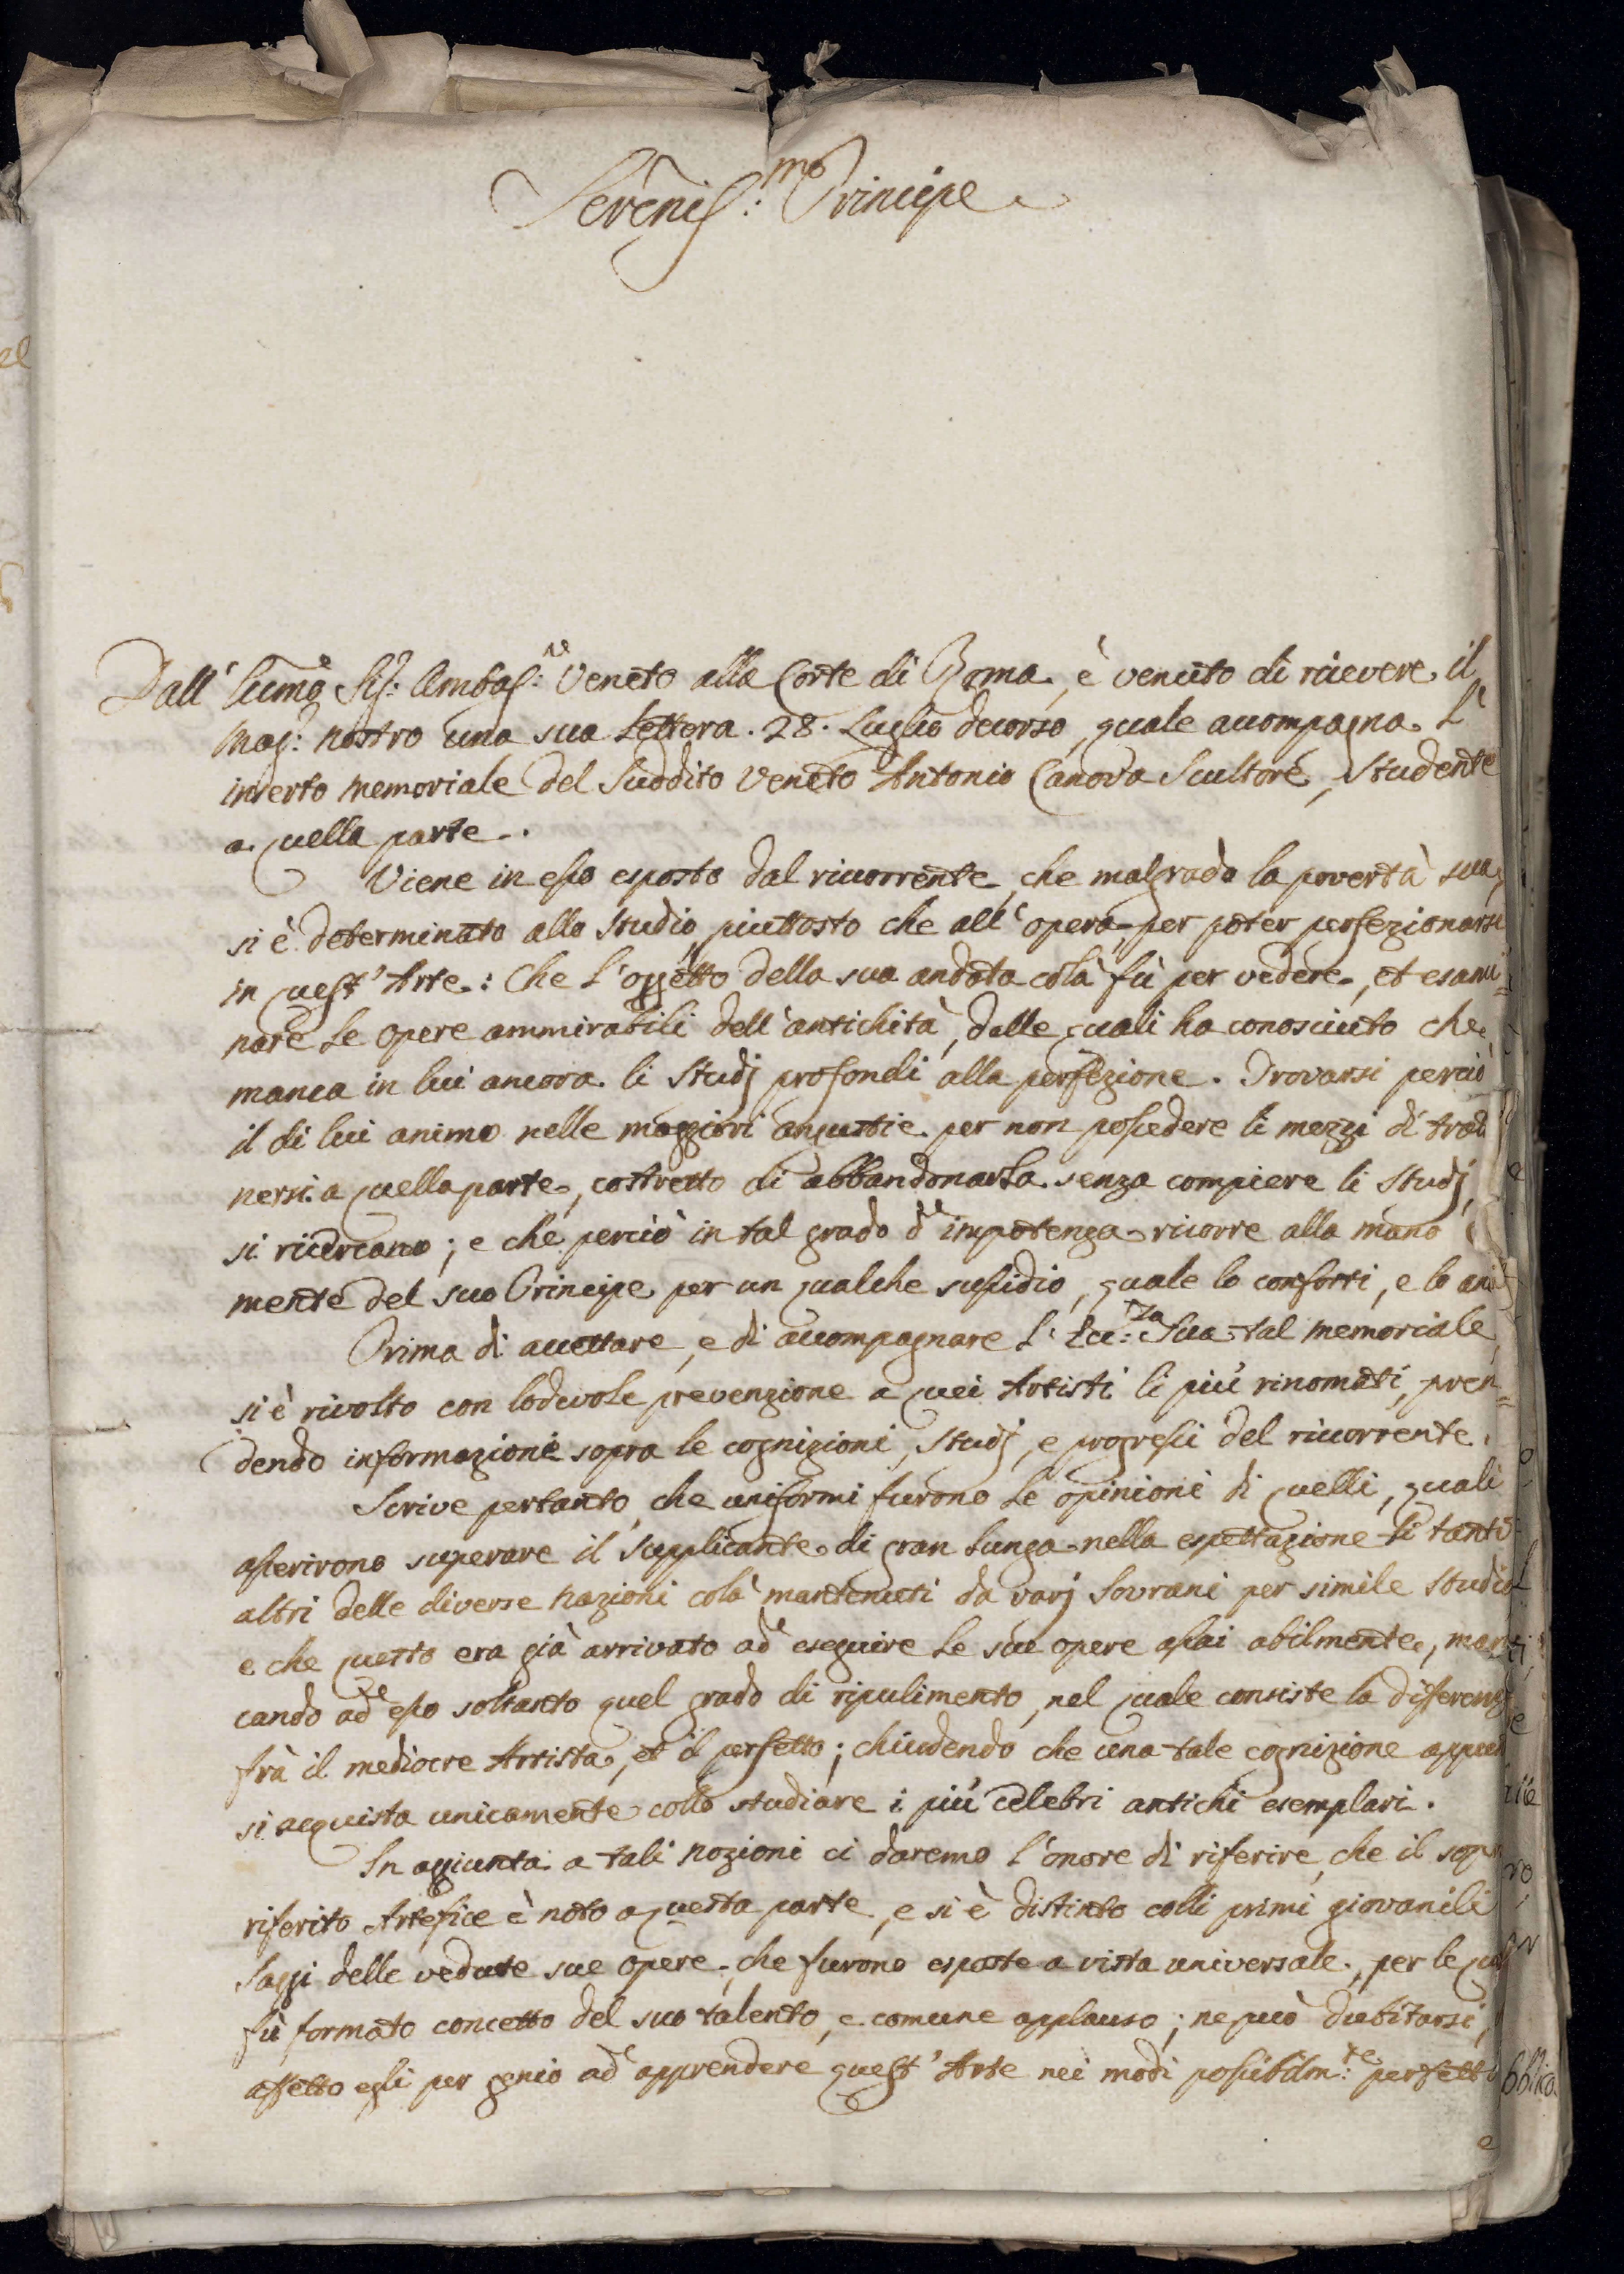 Serenis:mo Principe
Dall' Ecc:mo Sig: Ambas:re Veneto alla Corte di Roma, è venuto di ricevere il
Mag:o nostro una sua Lettera. 28. Luglio decorso, quale accompagna l'
inserto memoriale del Suddito Veneto Antonio Canova Scultore, Studente
a quella parte.
Viene in esso esposto dal ricorrente, che malgrado la povertà sua,
si è determinato allo studio piuttosto che all'opera per poter perfezionarsi
in quest'Arte: Che l'oggetto della sua andata colà fù per vedere, et esami=
nare le opere ammirabili dell'antichità, dalle quali ha conosciuto che
manca in lui ancora li Studj profondi alla perfezione. Trovarsi perciò
il di lui animo nelle maggiori angustie per non possedere li mezzi di trat
nersi a quella parte, costretto di abbandonarla senza compiere li Studj,
si ricercano; e che perciò in tal grado d'impotenza ricorre alla mano
mente del suo Principe per un qualche sussidio, quale lo conforti, e lo ani
Prima di accettare, e di accompagnare l'Ecc:za Sua tal memoriale,
si è rivolto con lodevole prevenzione a quei Artisti li più rinomati, pren=
dendo informazioni sopra le cognizioni, Studj, e progressi del ricorrente.
Scrive pertanto, che uniformi furono le opinioni di quelli, quali
asserirono superare il supplicante di gran lunga nella espettazione li tanti
altri delle diverse Nazioni colà mantenuti da varj Sovrani per simile Studio
e che questo era già arrivato ad eseguire le sue opere assai abilmente, man
cando ad esso soltanto quel grado di ripulimento, nel quale consiste la differenz
frà il mediocre Artista, et il perfetto; chiudendo che una tale cognizione appun
si acquista unicamente collo studiare i più celebri antichi esemplari.
In aggiunta a tali nozioni ci daremo l'onore di riferire, che il sopra
riferito Artefice è noto a questa parte, e si è distinto colli primi giovanili
Saggi delle vedute sue opere, che furono esposte a vista universale, per le qual
fù formato concetto del suo talento, e comune applauso; ne può dubitarsi,
affetto egli per genio ad apprendere quest'Arte nei modi possibilm:te perfetti
e